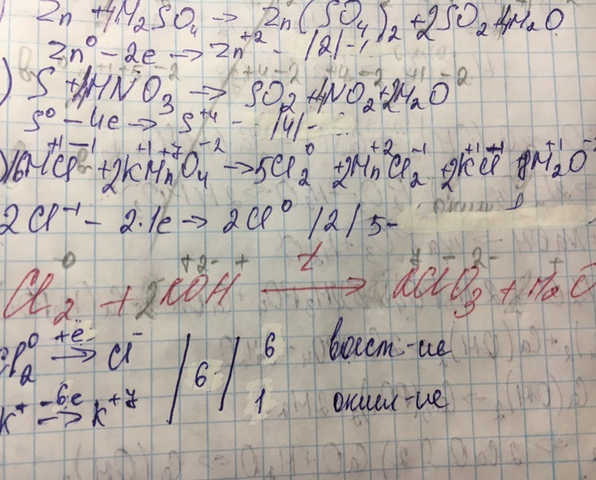 ) Zn + 4H₂SO₄ → Zn(SO₄)₂ + 2SO₂ 4H₂O
Zn⁰ - 2e → Zn⁺² - |2|-1
) S + 4HNO₃ → SO₂ + 4NO₂ + 2H₂O
S⁰ - 4e → S⁺⁴ - |4|-
)16H⁺¹Cl⁻¹ + 2K⁺¹Mn⁺⁷O₄⁻² → 5Cl₂⁰ + 2Mn⁺²Cl₂⁻¹ + 2KCl 8H₂⁺¹O⁻²
2Cl⁻¹ - 2·1e → 2Cl⁰ |2|5-
Cl₂⁰ + 2KOH t→ KClO₃ + H₂O
Cl₂⁰ +ē→ Cl⁻ | 6 | 6 восст-ие
K⁺ -6e→ K⁺⁷ | | 1 окисл-ие